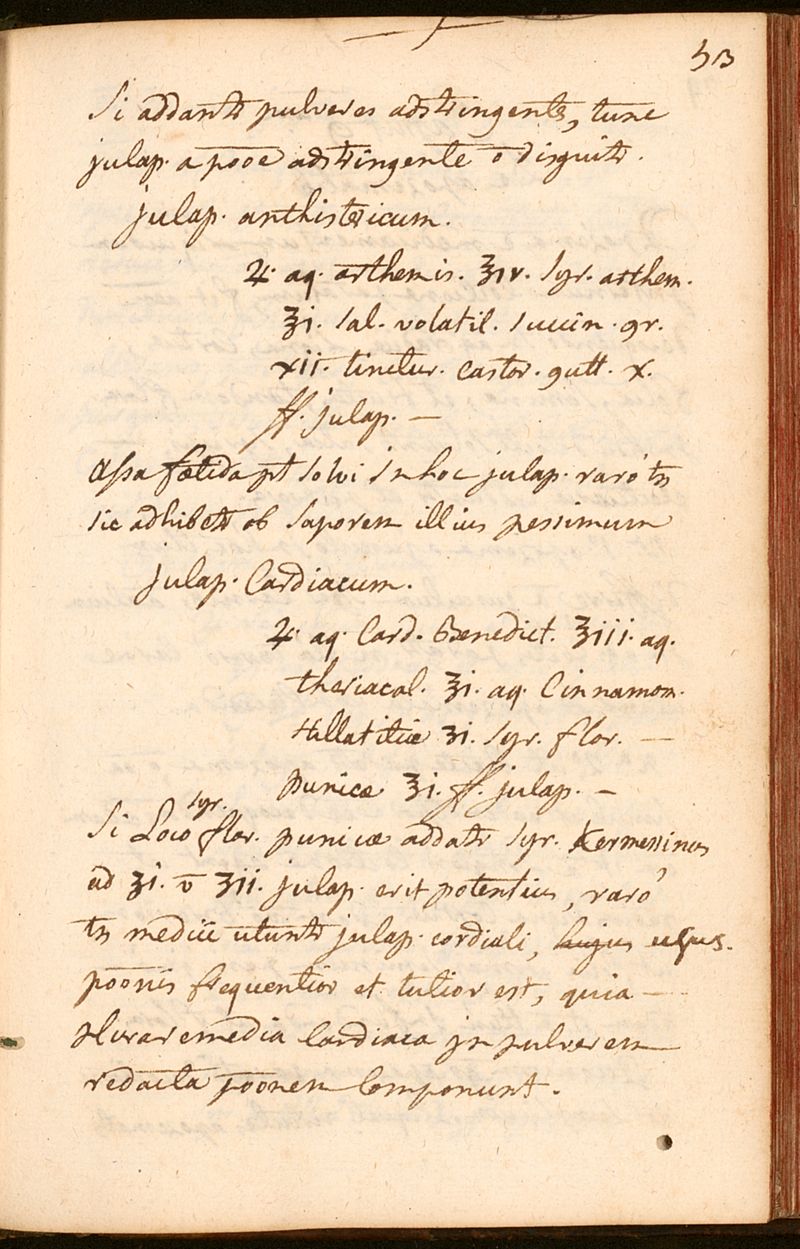 53
Si addantr pulveres adstringentes, tunc
julap. a pōoe adstringente ō disguitr.
julap. anthistericum.
♃. aq. arthemis. ℥iv. Syr. arthem.
℥i. Sal. volatil. Succin. gr.
xii. tinctur. castor. gutt. x.
ff. julap. —
assa fœtida pt solvi in hoc julap. raró tn
sic adhibetr ob saporem illius pessimum
julap. Cardiacum.
♃. aq. Card. Benedict. ℥iii. aq.
theriacal. ℥i. aq. Cinnamom.
stillatitiæ ʒi. Syr. flor. —
punicæ ℥i. ff. julap. —
Si Loco syr. flor. punicæ addatr Syr. Kermesinus
ad ℥i. v̄ ʒii. julap. erit potentius, raró
tn medici utuntr julap. cordiali, hujus usus
pōonis frequentior et tutior est, quia —
plura remedia Cardiaca in pulverem
redacta pōonem Componunt.